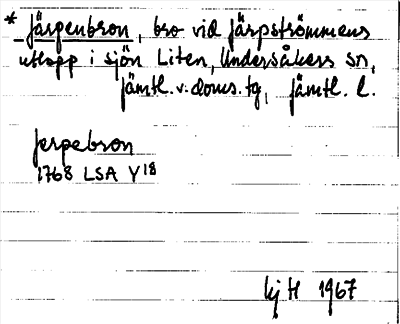 * Järpenbron, bro vid Järpströmmens
utlopp i sjön Liten, Undersåkers sn,
Jämtl. v. doms. tg, Jämtl. l.
Jerpebron
1768 LSA Y18
kj H 1967